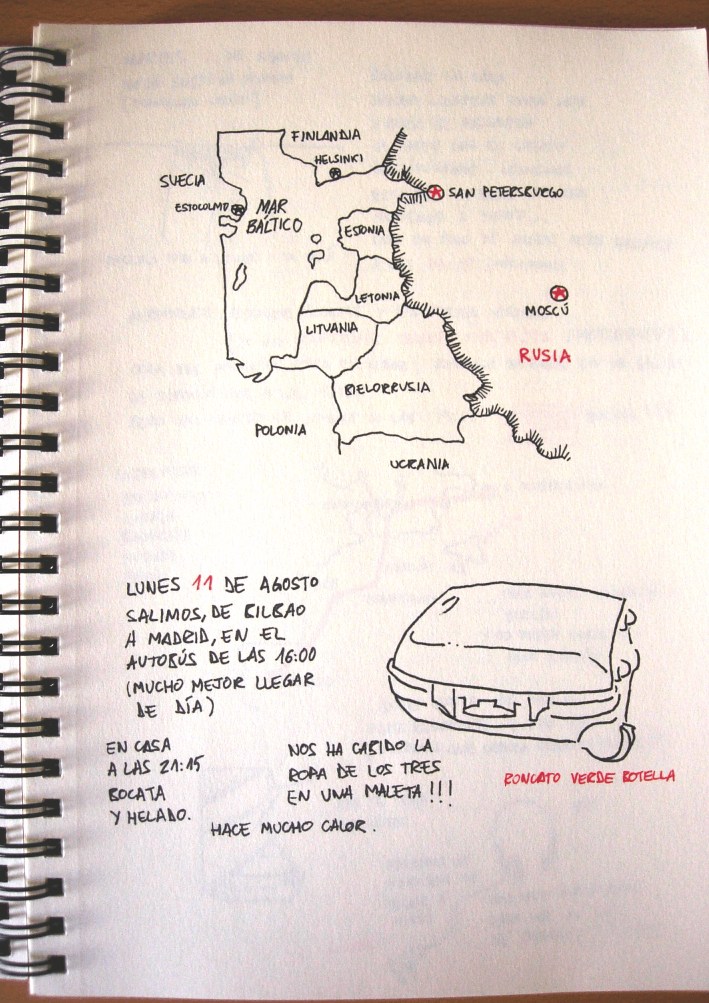 FINLANDIA
HELSINKI
SUECIA
ESTOCOLMO
MAR
BÁLTICO
SAN PETERSBURGO
ESTONIA
LETONIA
MOSCÚ
LITUANIA
RUSIA
BIELORRUSIA
POLONIA
UCRANIA
LUNES 11 DE AGOSTO
SALIMOS, DE BILBAO
A MADRID, EN EL
AUTOBÚS DE LAS 16:00
(MUCHO MEJOR LLEGAR
DE DÍA)
EN CASA
A LAS 21:15
BOCATA
Y HELADO.
NOS HA CABIDO LA
ROPA DE LOS TRES
EN UNA MALETA!!!
HACE MUCHO CALOR.
RONCATO VERDE BOTELLA